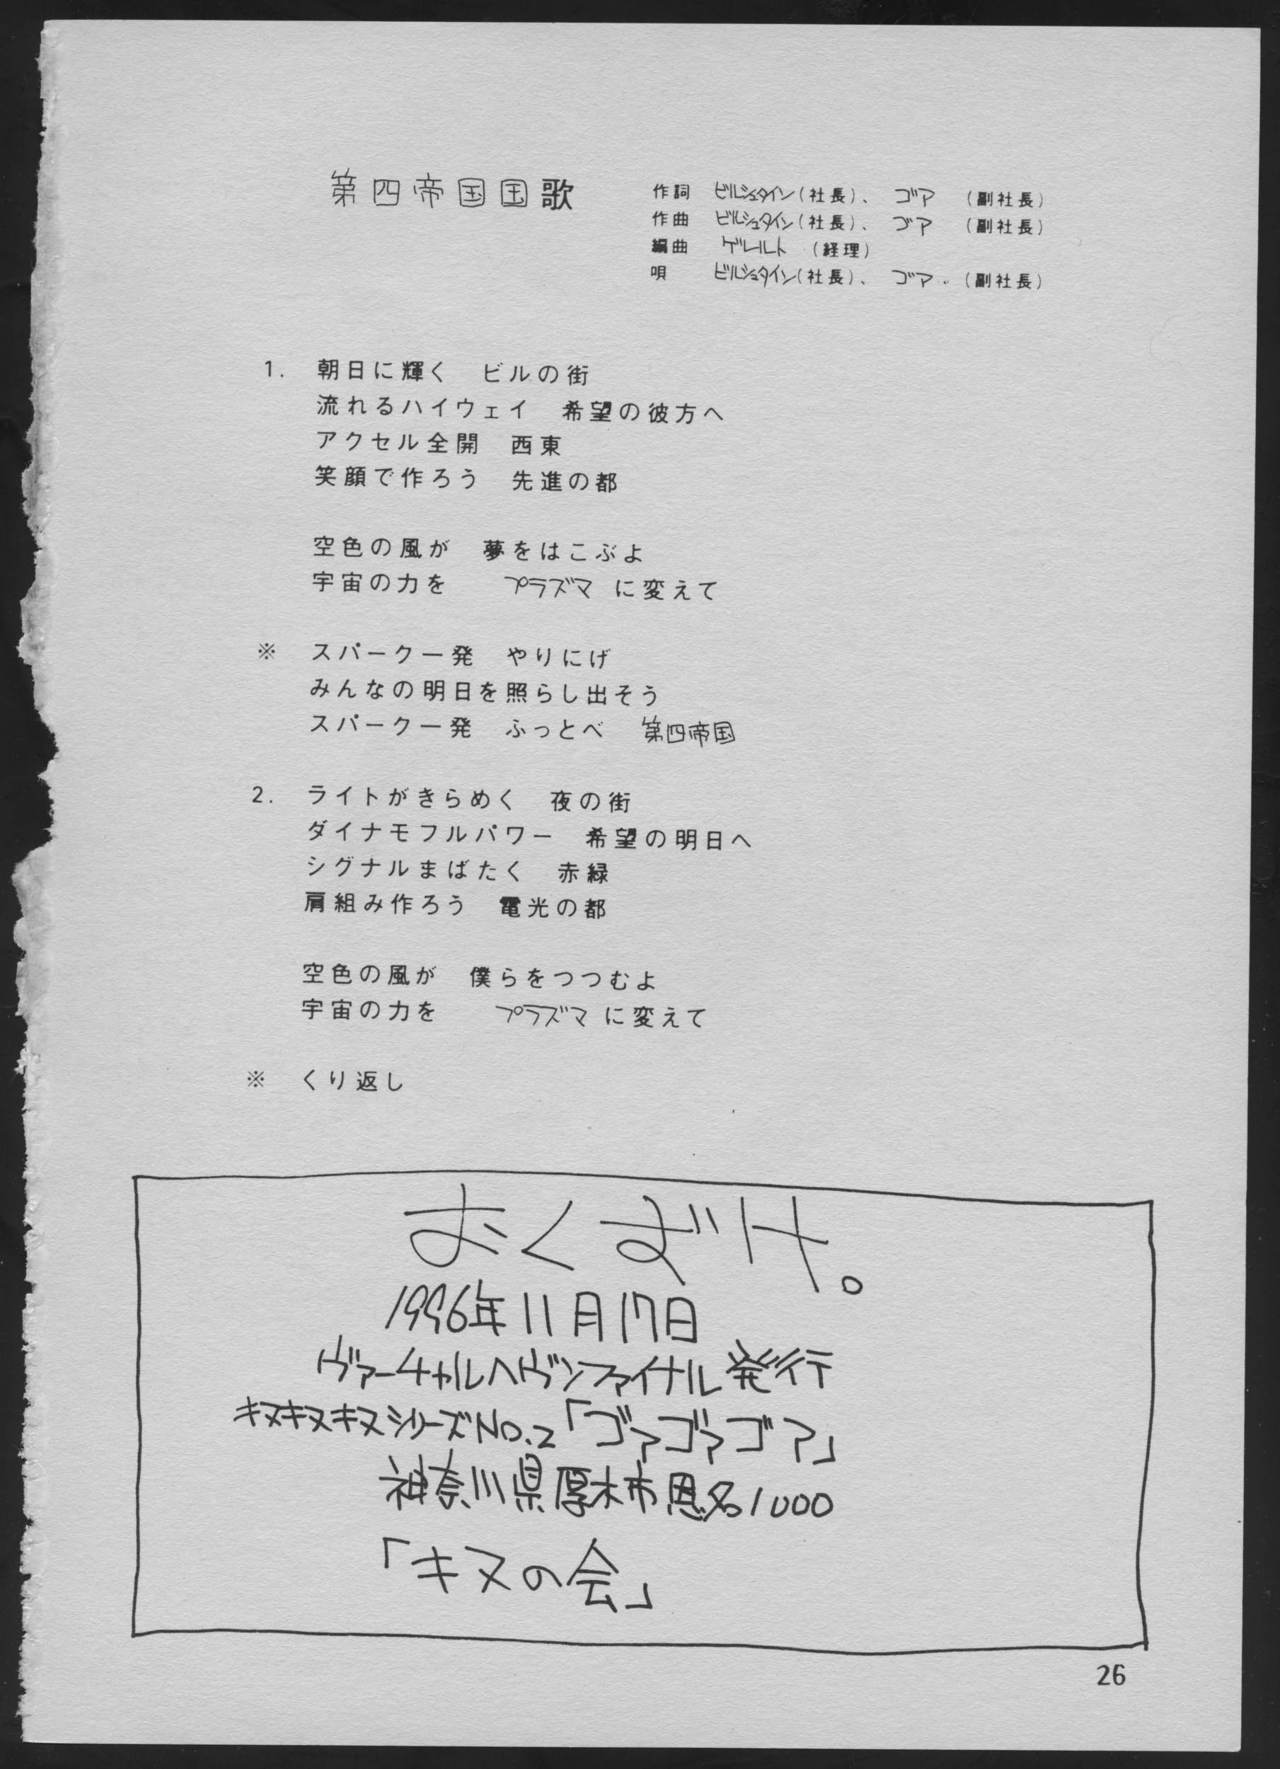 第四帝国国歌
作詞 ビルシュタイン(社長)、 ゴア (副社長)
作曲 ビルシュタイン(社長)、 ゴア (副社長)
編曲 ゲレルト (経理)
唄 ビルシュタイン(社長)、 ゴア、(副社長)
1. 朝日に輝く ビルの街
流れるハイウェイ 希望の彼方へ
アクセル全開 西東
笑顔で作ろう 先進の都
空色の風が 夢をはこぶよ
宇宙の力を プラズマ に変えて
※ スパーク一発 やりにげ
みんなの明日を照らし出そう
スパーク一発 ふっとべ 第四帝国
2. ライトがきらめく 夜の街
ダイナモフルパワー 希望の明日へ
シグナルまばたく 赤緑
肩組み作ろう 電光の都
空色の風が 僕らをつつむよ
宇宙の力を プラズマ に変えて
※ くり返し
おくずけ。
1996年11月17日
ヴァーチャルヘヴンファイナル発行
キヌキヌキヌシリーズNO.2「ゴァゴァゴア」
神奈川県厚木市恩名1000
「キヌの会」
26